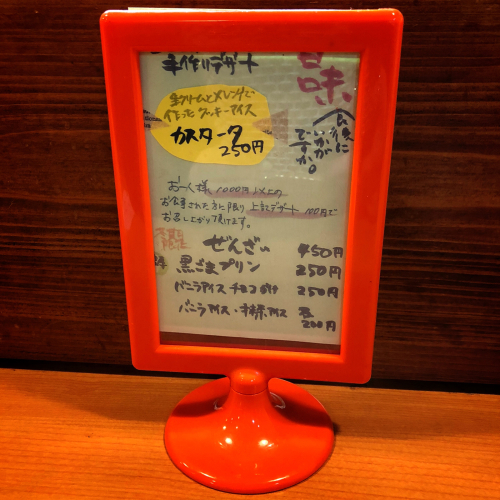 手作りデザート
甘味
食後に
いかが
ですか。
生クリームとメレンゲで
作ったクッキーアイス
カスタータ
250円
お一人様 1000円以上の
お食事された方に限り 上記デザート 100円で
お召し上がり頂けます。
限定
ぜんざい 450円
黒ごまプリン 250円
バニラアイス チョコがけ 250円
バニラアイス・抹茶アイス 各
200円